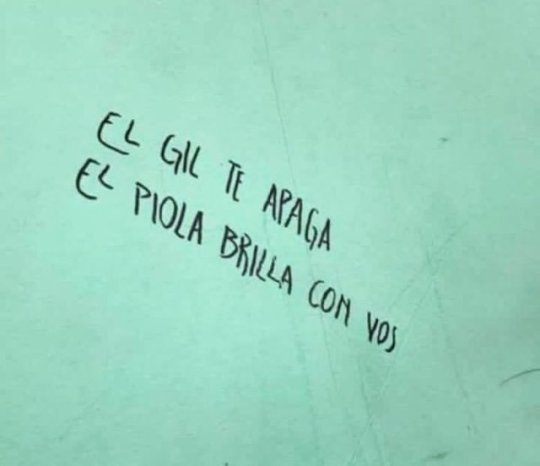 EL GIL TE APAGA
EL PIOLA BRILLA CON VOS